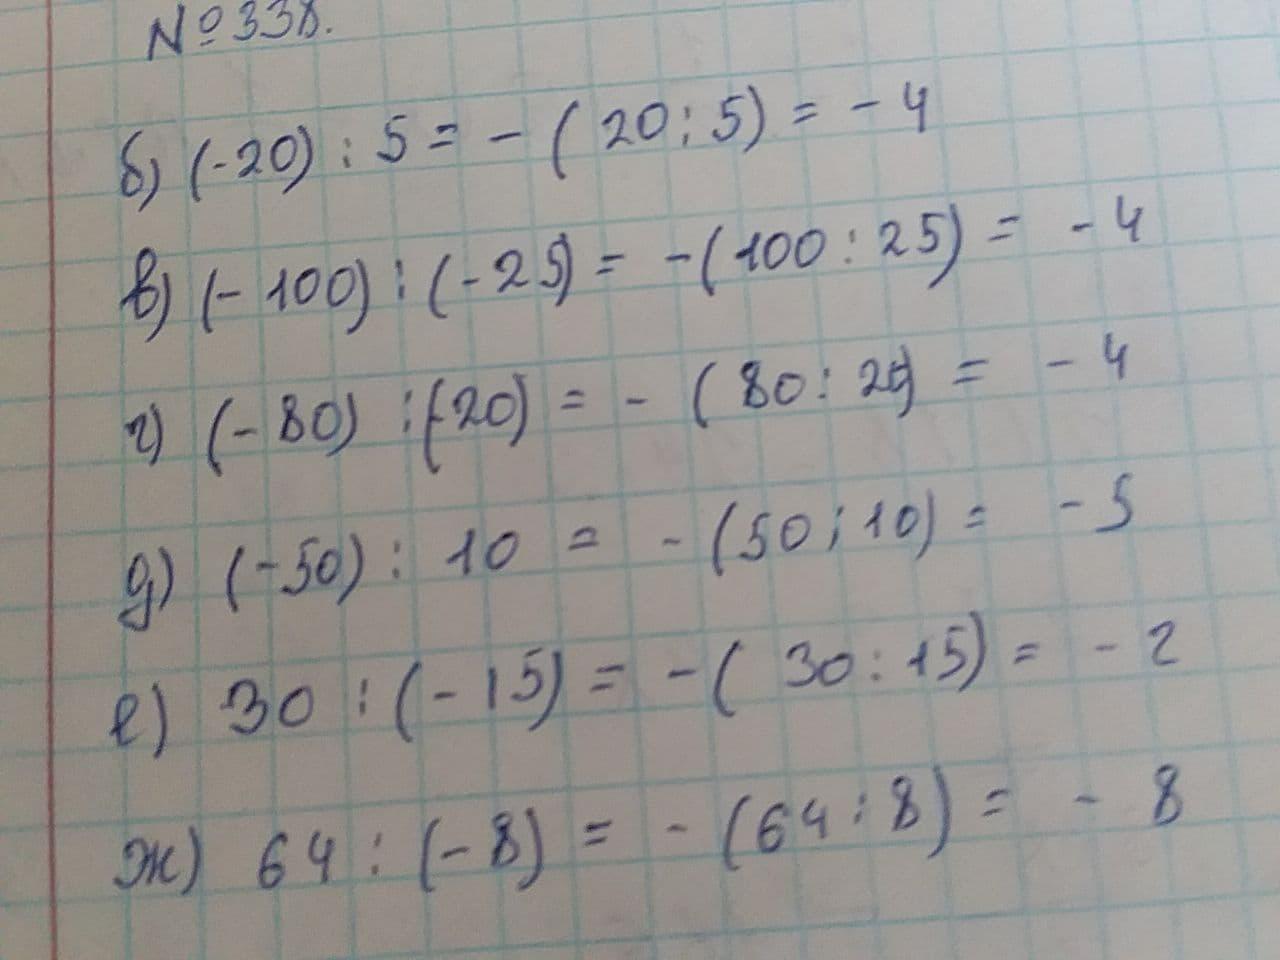 №338.
б) (-20) : 5 = - (20 : 5) = - 4
в) (- 100) : (- 25) = - (100 : 25) = - 4
г) (- 80) : (-20) = - (80 : 20) = - 4
д) (-50) : 10 = - (50 : 10) = - 5
е) 30 : (- 15) = - (30 : 15) = - 2
ж) 64 : (- 8) = - (64 : 8) = - 8